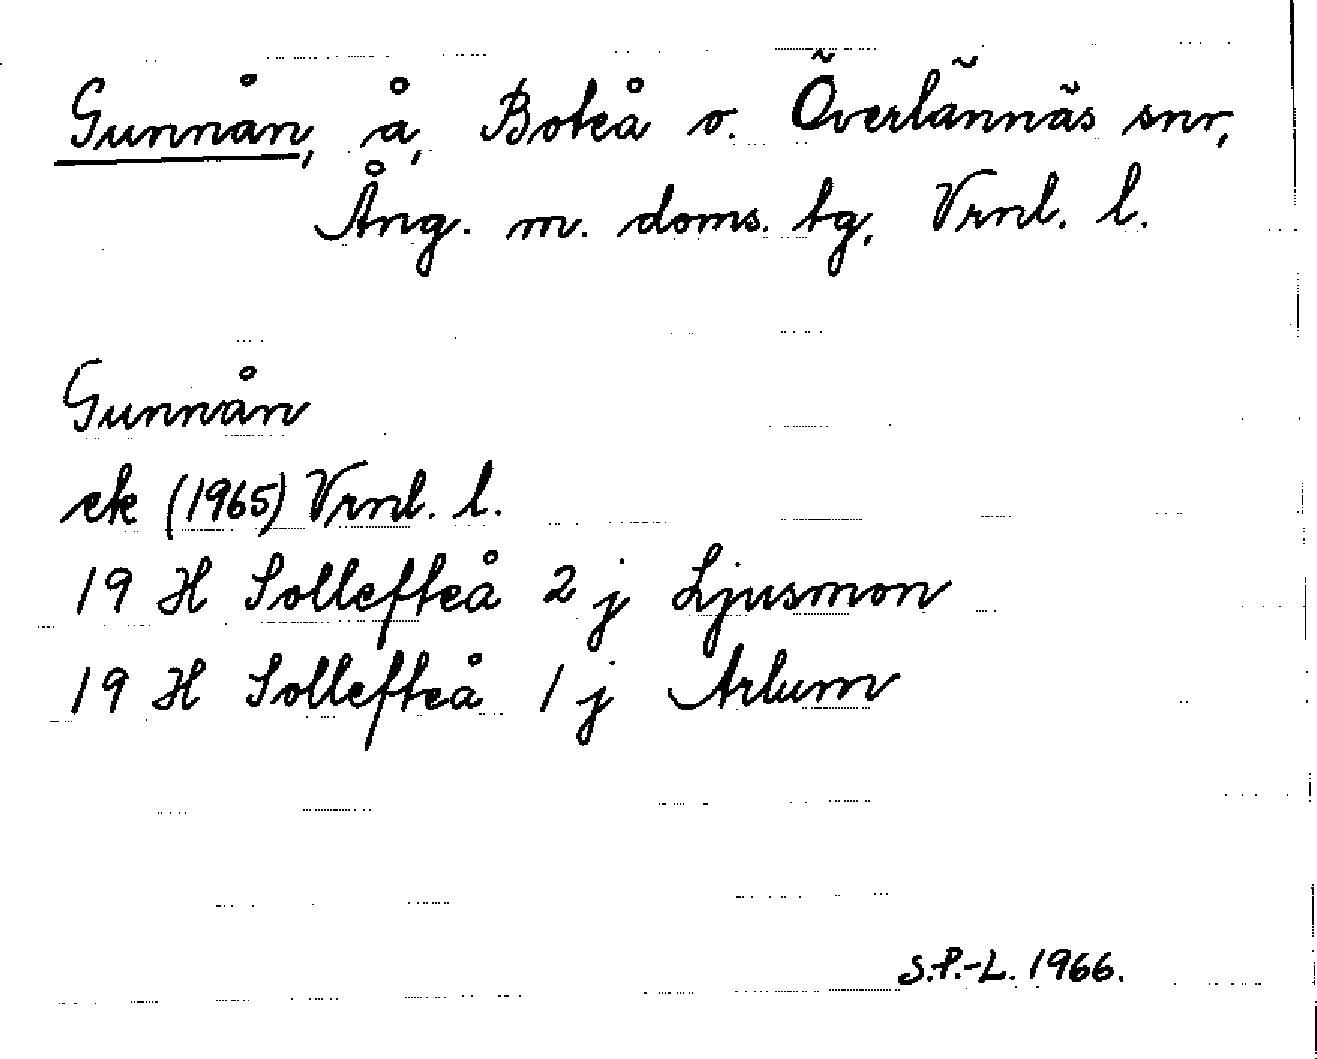 Gunnån, å, Boteå o. Överlännäs snr,
Ång. m. doms. tg, Vrnl. l.
Gunnån
ek (1965) Vrnl. l.
19 H Sollefteå 2 j Ljusmon
19 H Sollefteå 1 j Arlum
S.P.-L. 1966.